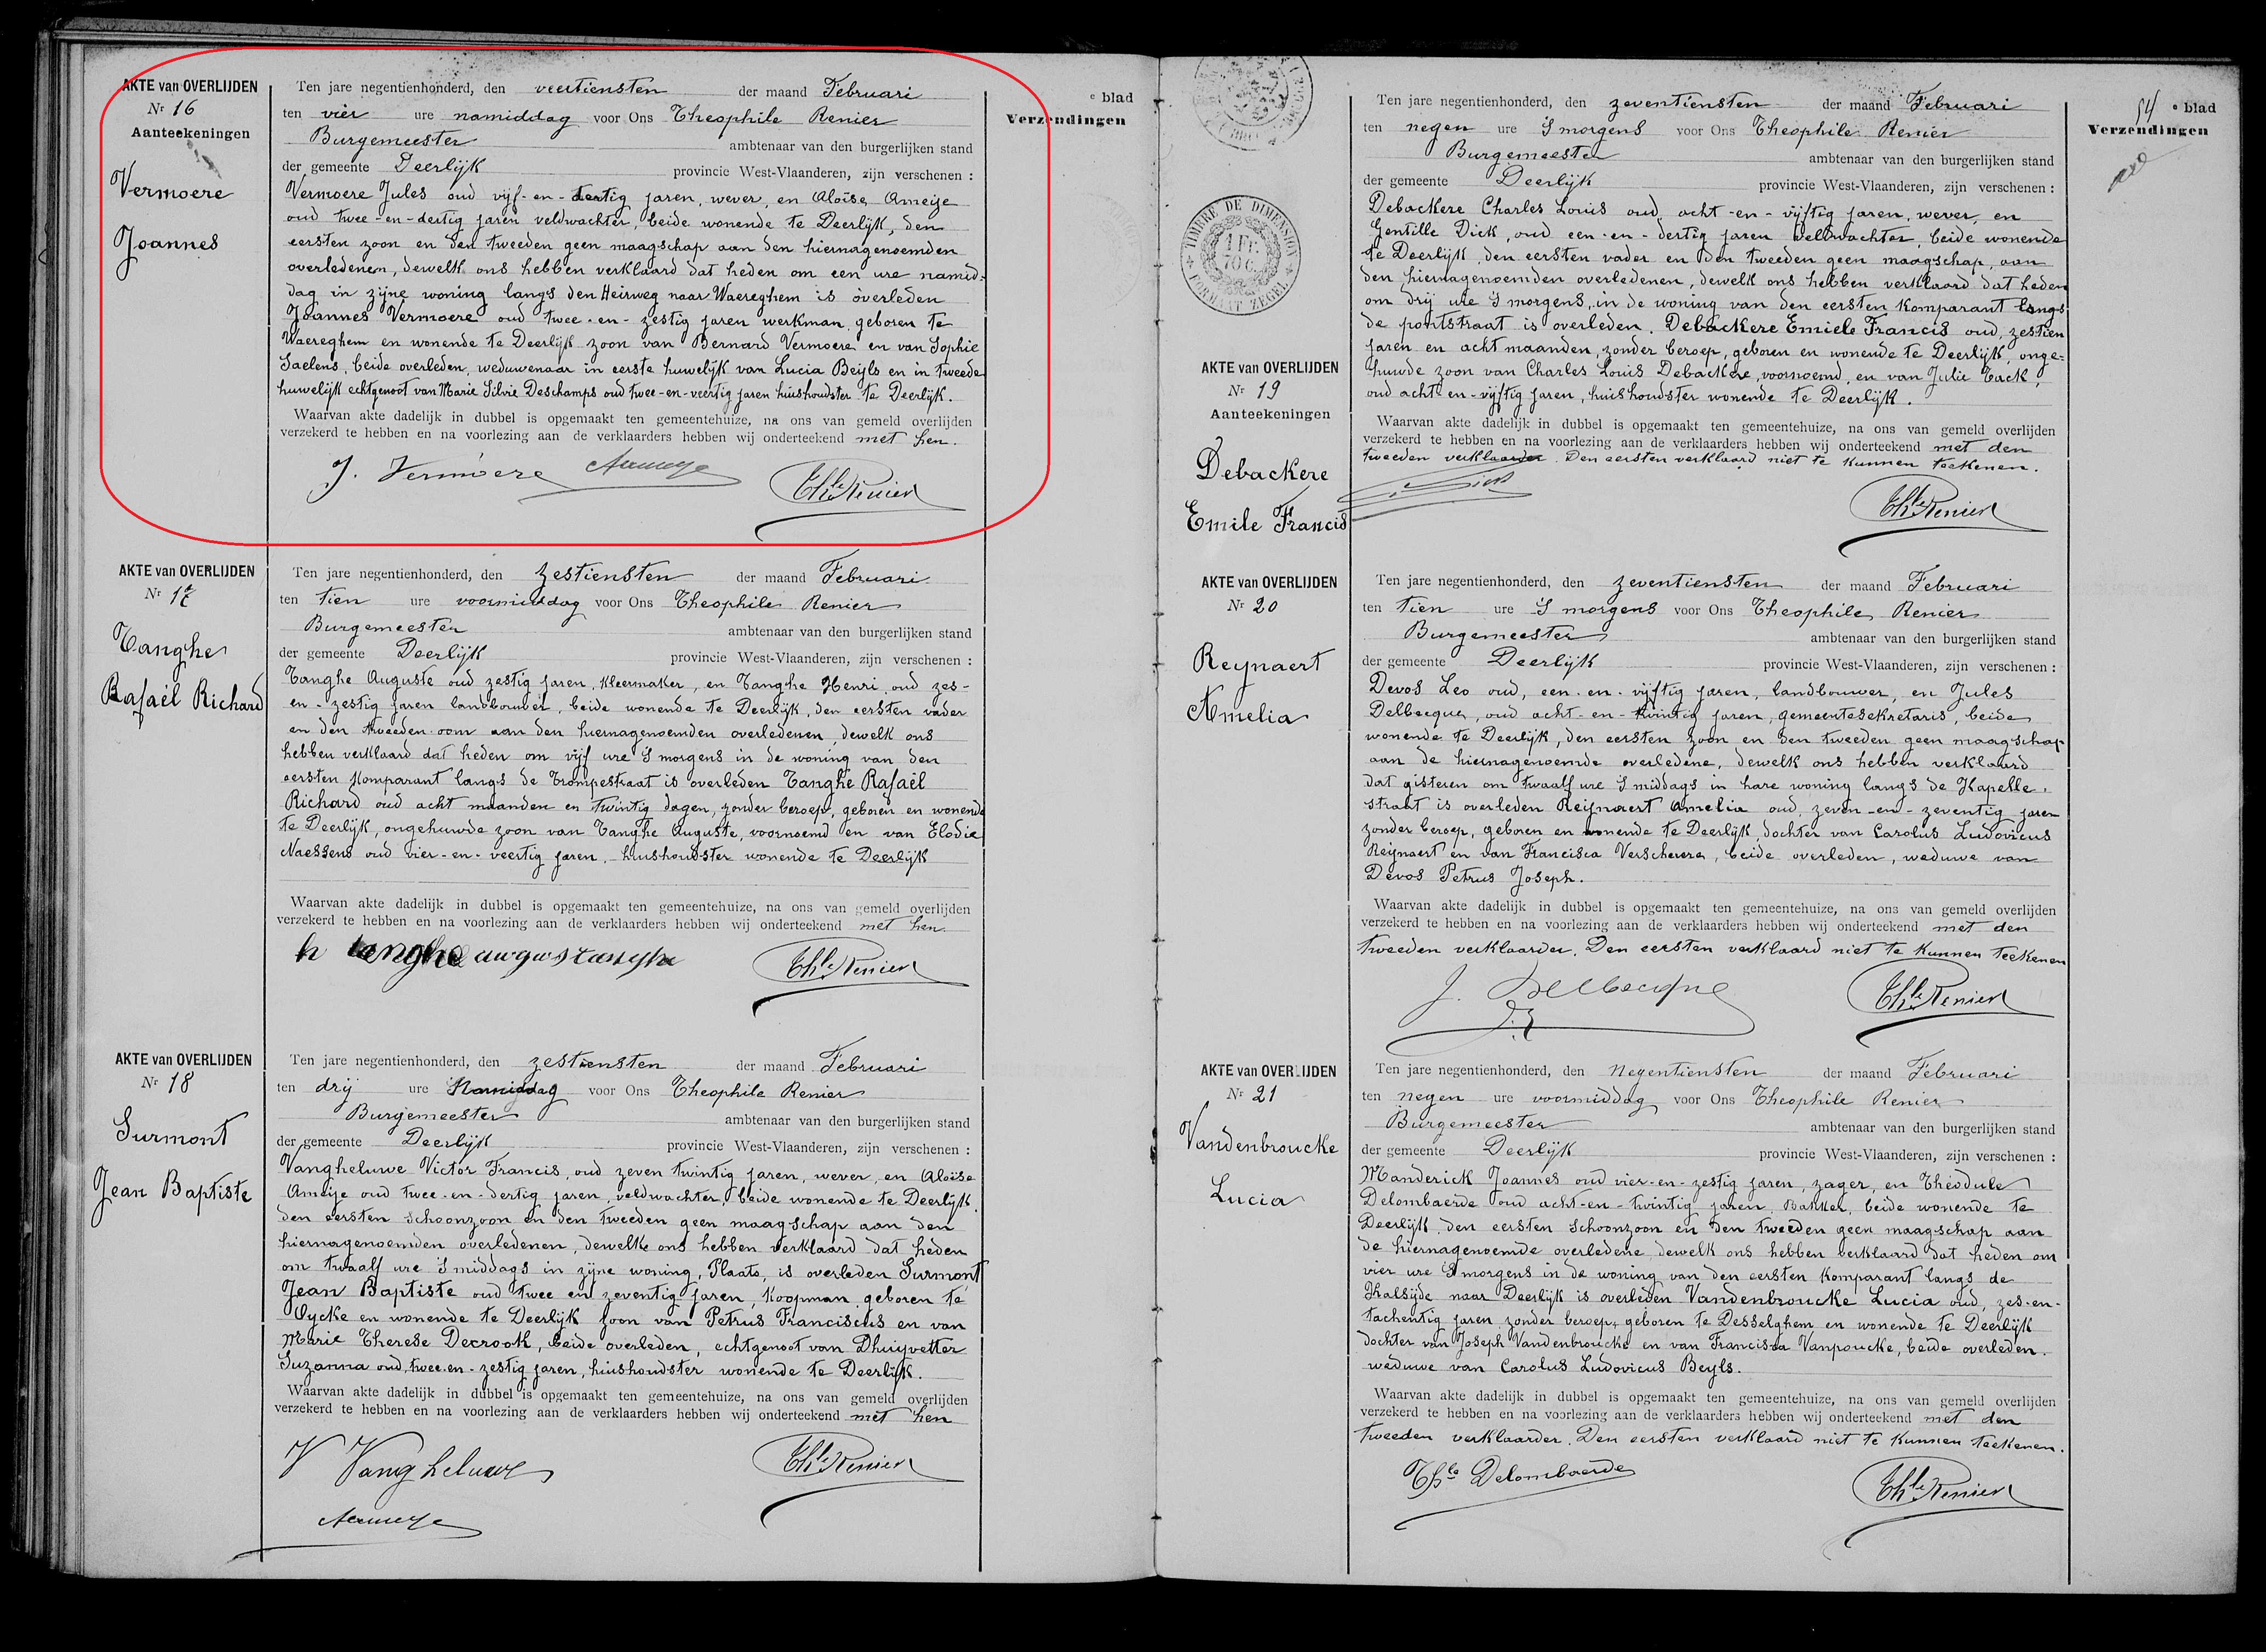 AKTE van OVERLIJDEN
Nr 16
Aanteekeningen
Vermoere
Joannes
Ten jare negentienhonderd, den veertiensten der maand Februari
ten vier ure namiddag voor Ons Theophile Renier
Burgemeester ambtenaar van den burgerlijken stand
der gemeente Deerlijk provincie West-Vlaanderen, zijn verschenen :
Vermoere Jules oud vijf-en-dertig jaren, wever, en Aloïse Ameije
oud twee-en-dertig jaren veldwachter, beide wonende te Deerlijk, den
eersten zoon en den tweeden geen maagschap aan den hiernagenoemden
overledenen, dewelk ons hebben verklaard dat heden om een ure namid-
dag in zijne woning langs den Heirweg naar Waereghem is overleden
Joannes Vermoere oud twee-en-zestig jaren werkman, geboren te
Waereghem en wonende te Deerlijk zoon van Bernard Vermoere en van Sophie
Saelens, beide overleden, weduwenaar in eerste huwelijk van Lucia Beyls en in tweede
huwelijk echtgenoot van Marie Silvie Deschamps oud twee-en-veertig jaren huishoudster te Deerlijk.
Waarvan akte dadelijk in dubbel is opgemaakt ten gemeentehuize, na ons van gemeld overlijden
verzekerd te hebben en na voorlezing aan de verklaarders hebben wij onderteekend met hen.
J. Vermoere Ameye Thle Renier
e blad
Verzendingen
AKTE van OVERLIJDEN
Nr 17
Tanghe
Rafaël Richard
Ten jare negentienhonderd, den zestiensten der maand Februari
ten tien ure voormiddag voor Ons Theophile Renier
Burgemeester ambtenaar van den burgerlijken stand
der gemeente Deerlijk provincie West-Vlaanderen, zijn verschenen :
Tanghe Auguste oud zestig jaren, kleermaker, en Tanghe Henri oud zes-
en-zestig jaren landbouwer, beide wonende te Deerlijk, den eersten vader
en den tweeden oom aan den hiernagenoemden overledenen, dewelk ons
hebben verklaard dat heden om vijf ure 's morgens in de woning van den
eersten Komparant langs de Trompestraat is overleden Tanghe Rafaël
Richard oud acht maanden en twintig dagen, zonder beroep, geboren en wonende
te Deerlijk, ongehuwde zoon van Tanghe Auguste, voornoemd en van Elodie
Naessens oud vier-en-veertig jaren, huishoudster wonende te Deerlijk
Waarvan akte dadelijk in dubbel is opgemaakt ten gemeentehuize, na ons van gemeld overlijden
verzekerd te hebben en na voorlezing aan de verklaarders hebben wij onderteekend met hen.
h tanghe august tanghe Thle Renier
AKTE van OVERLIJDEN
Nr 18
Surmont
Jean Baptiste
Ten jare negentienhonderd, den zestiensten der maand Februari
ten drij ure Namiddag voor Ons Theophile Renier
Burgemeester ambtenaar van den burgerlijken stand
der gemeente Deerlijk provincie West-Vlaanderen, zijn verschenen :
Vangheluwe Victor Francis, oud zeven twintig jaren, wever, en Aloïse
Ameije oud twee-en-dertig jaren, veldwachter, beide wonende te Deerlijk,
den eersten schoonzoon en den tweeden geen maagschap aan den
hiernagenoemden overledenen, dewelke ons hebben verklaard dat heden
om twaalf ure 's middags in zijne woning, Plaats, is overleden Surmont
Jean Baptiste oud twee en zeventig jaren, Koopman, geboren te
Oycke en wonende te Deerlijk zoon van Petrus Franciscus en van
Marie Therese Decroock, beide overleden, echtgenoot van Dhuijvetter
Suzanna oud, twee-en-zestig jaren, huishoudster wonende te Deerlijk.
Waarvan akte dadelijk in dubbel is opgemaakt ten gemeentehuize, na ons van gemeld overlijden
verzekerd te hebben en na voorlezing aan de verklaarders hebben wij onderteekend met hen
V Vangheluwe Thle Renier
Ameye
TIMBRE DE DIMENSION
1 FR.
70 C.
FORMAAT ZEGEL
54 e blad
Verzendingen
AKTE van OVERLIJDEN
Nr 19
Aanteekeningen
Debackere
Emile Francis
Ten jare negentienhonderd, den zeventiensten der maand Februari
ten negen ure 'S morgens voor Ons Theophile Renier
Burgemeester ambtenaar van den burgerlijken stand
der gemeente Deerlijk provincie West-Vlaanderen, zijn verschenen :
Debackere Charles Louis oud, acht-en-vijftig jaren, wever, en
Gentille Dick, oud een-en-dertig jaren veldwachter, beide wonende
te Deerlijk, den eersten vader en den tweeden geen maagschap, aan
den hiernagenoemden overledenen, dewelk ons hebben verklaard dat heden
om drij ure 's morgens, in de woning van den eersten Komparant langs
de pontstraat is overleden, Debackere Emiele Francis oud, zestien
jaren en acht maanden, zonder beroep, geboren en wonende te Deerlijk, onge-
huwde zoon van Charles Louis Debackere, voornoemd, en van Julie Tack,
oud acht-en-vijftig jaren, huishoudster wonende te Deerlijk.
Waarvan akte dadelijk in dubbel is opgemaakt ten gemeentehuize, na ons van gemeld overlijden
verzekerd te hebben en na voorlezing aan de verklaarders hebben wij onderteekend met den
tweeden verklaarder. Den eersten verklaard niet te kunnen teekenen.
Dick Thle Renier
AKTE van OVERLIJDEN
Nr 20
Reynaert
Amelia
Ten jare negentienhonderd, den zeventiensten der maand Februari
ten tien ure 'S morgens voor Ons Theophile Renier
Burgemeester ambtenaar van den burgerlijken stand
der gemeente Deerlijk provincie West-Vlaanderen, zijn verschenen :
Devos Leo oud, een-en-vijftig jaren, landbouwer, en Jules
Delbecque, oud acht-en-twintig jaren, gemeentesekretaris, beide
wonende te Deerlijk, den eersten zoon en den tweeden geen maagschap
aan de hiernagenoemde overledene, dewelk ons hebben verklaard
dat gisteren om twaalf ure 's middags in hare woning langs de Kapelle-
straat is overleden Reijnaert Amelia oud, zeven-en-zeventig jaren
zonder beroep, geboren en wonende te Deerlijk, dochter van Carolus Ludovicus
Reijnaert en van Francisca Verschuere, beide overleden, weduwe van
Devos Petrus Joseph.
Waarvan akte dadelijk in dubbel is opgemaakt ten gemeentehuize, na ons van gemeld overlijden
verzekerd te hebben en na voorlezing aan de verklaarders hebben wij onderteekend met den
tweeden verklaarder. Den eersten verklaard niet te kunnen teekenen
J. Delbecque Thle Renier
AKTE van OVERLIJDEN
Nr 21
Vandenbroucke
Lucia
Ten jare negentienhonderd, den Negentiensten der maand Februari
ten negen ure voormiddag voor Ons Theophile Renier
Burgemeester ambtenaar van den burgerlijken stand
der gemeente Deerlijk provincie West-Vlaanderen, zijn verschenen :
Manderick Joannes oud vier-en-zestig jaren, zager, en Théodule
Delombaerde oud acht-en-twintig jaren, Bakker, beide wonende te
Deerlijk, den eersten schoonzoon en den tweeden geen maagschap aan
de hiernagenoemde overledene, dewelk ons hebben verklaard dat heden om
vier ure 'S morgens in de woning van den eersten Komparant langs de
Kalsijde naar Deerlijk is overleden Vandenbroucke Lucia oud, zes-en-
tachentig jaren zonder beroep, geboren te Desselghem en wonende te Deerlijk
dochter van Joseph Vandenbroucke en van Francisca Vanpoucke, beide overleden.
weduwe van Carolus Ludovicus Beyls.
Waarvan akte dadelijk in dubbel is opgemaakt ten gemeentehuize, na ons van gemeld overlijden
verzekerd te hebben en na voorlezing aan de verklaarders hebben wij onderteekend met den
tweeden verklaarder. Den eersten verklaard niet te kunnen teekenen.
Thle Delombaerde Thle Renier